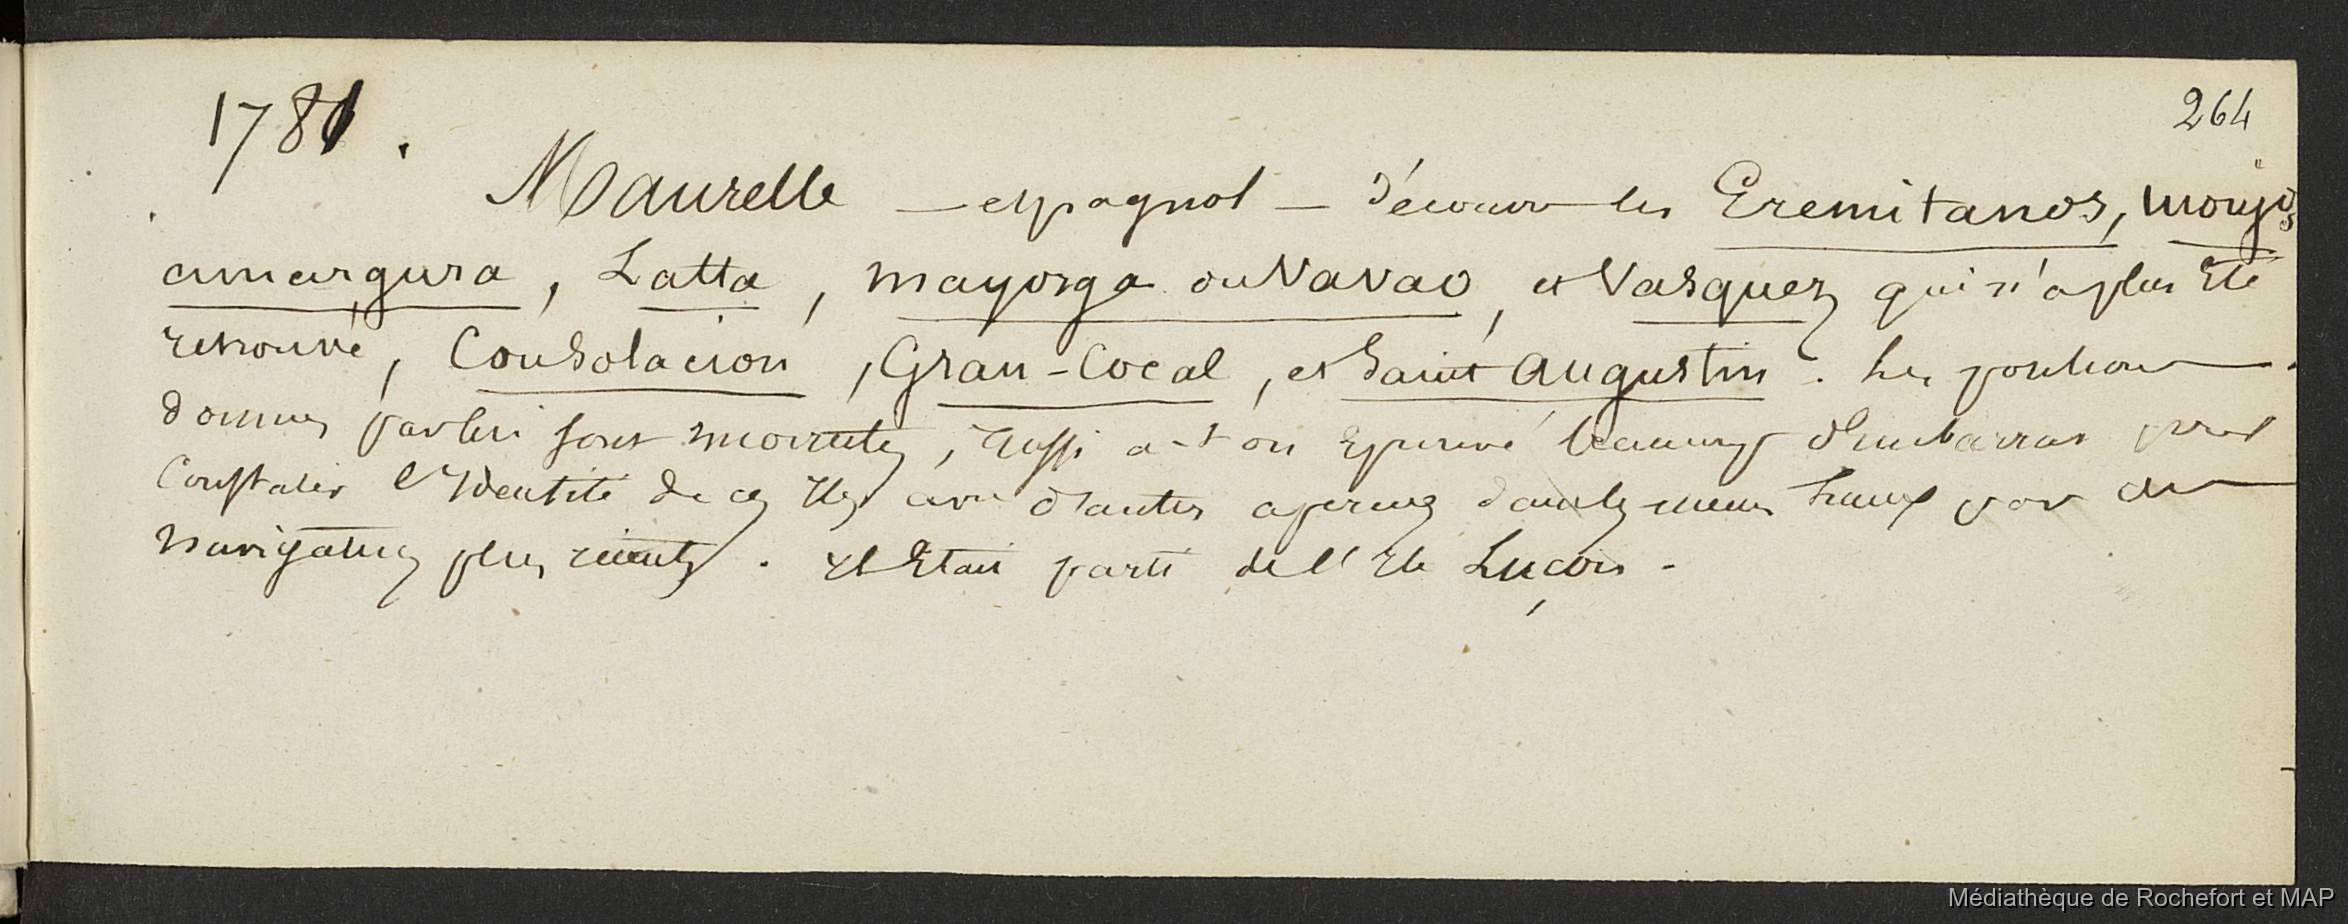 264
1781.
Maurelle – espagnol – découvre les Eremitanos, Monjos
amargura, Latta, mayorga ou Vavao, et Vasquez qui n'a plus été
retrouvé, Consolacion, Gran-Cocal, et Saint augustin. les positions
données par lui sont inexactes, aussi a-t-on éprouvé beaucoup d'embarras pour
constater l'identité de ces Iles avec d'autres aperçues dans les mêmes lieux par des
navigateurs plus récents. il était parti de l'Ile Luçon.
Médiathèque de Rochefort et MAP